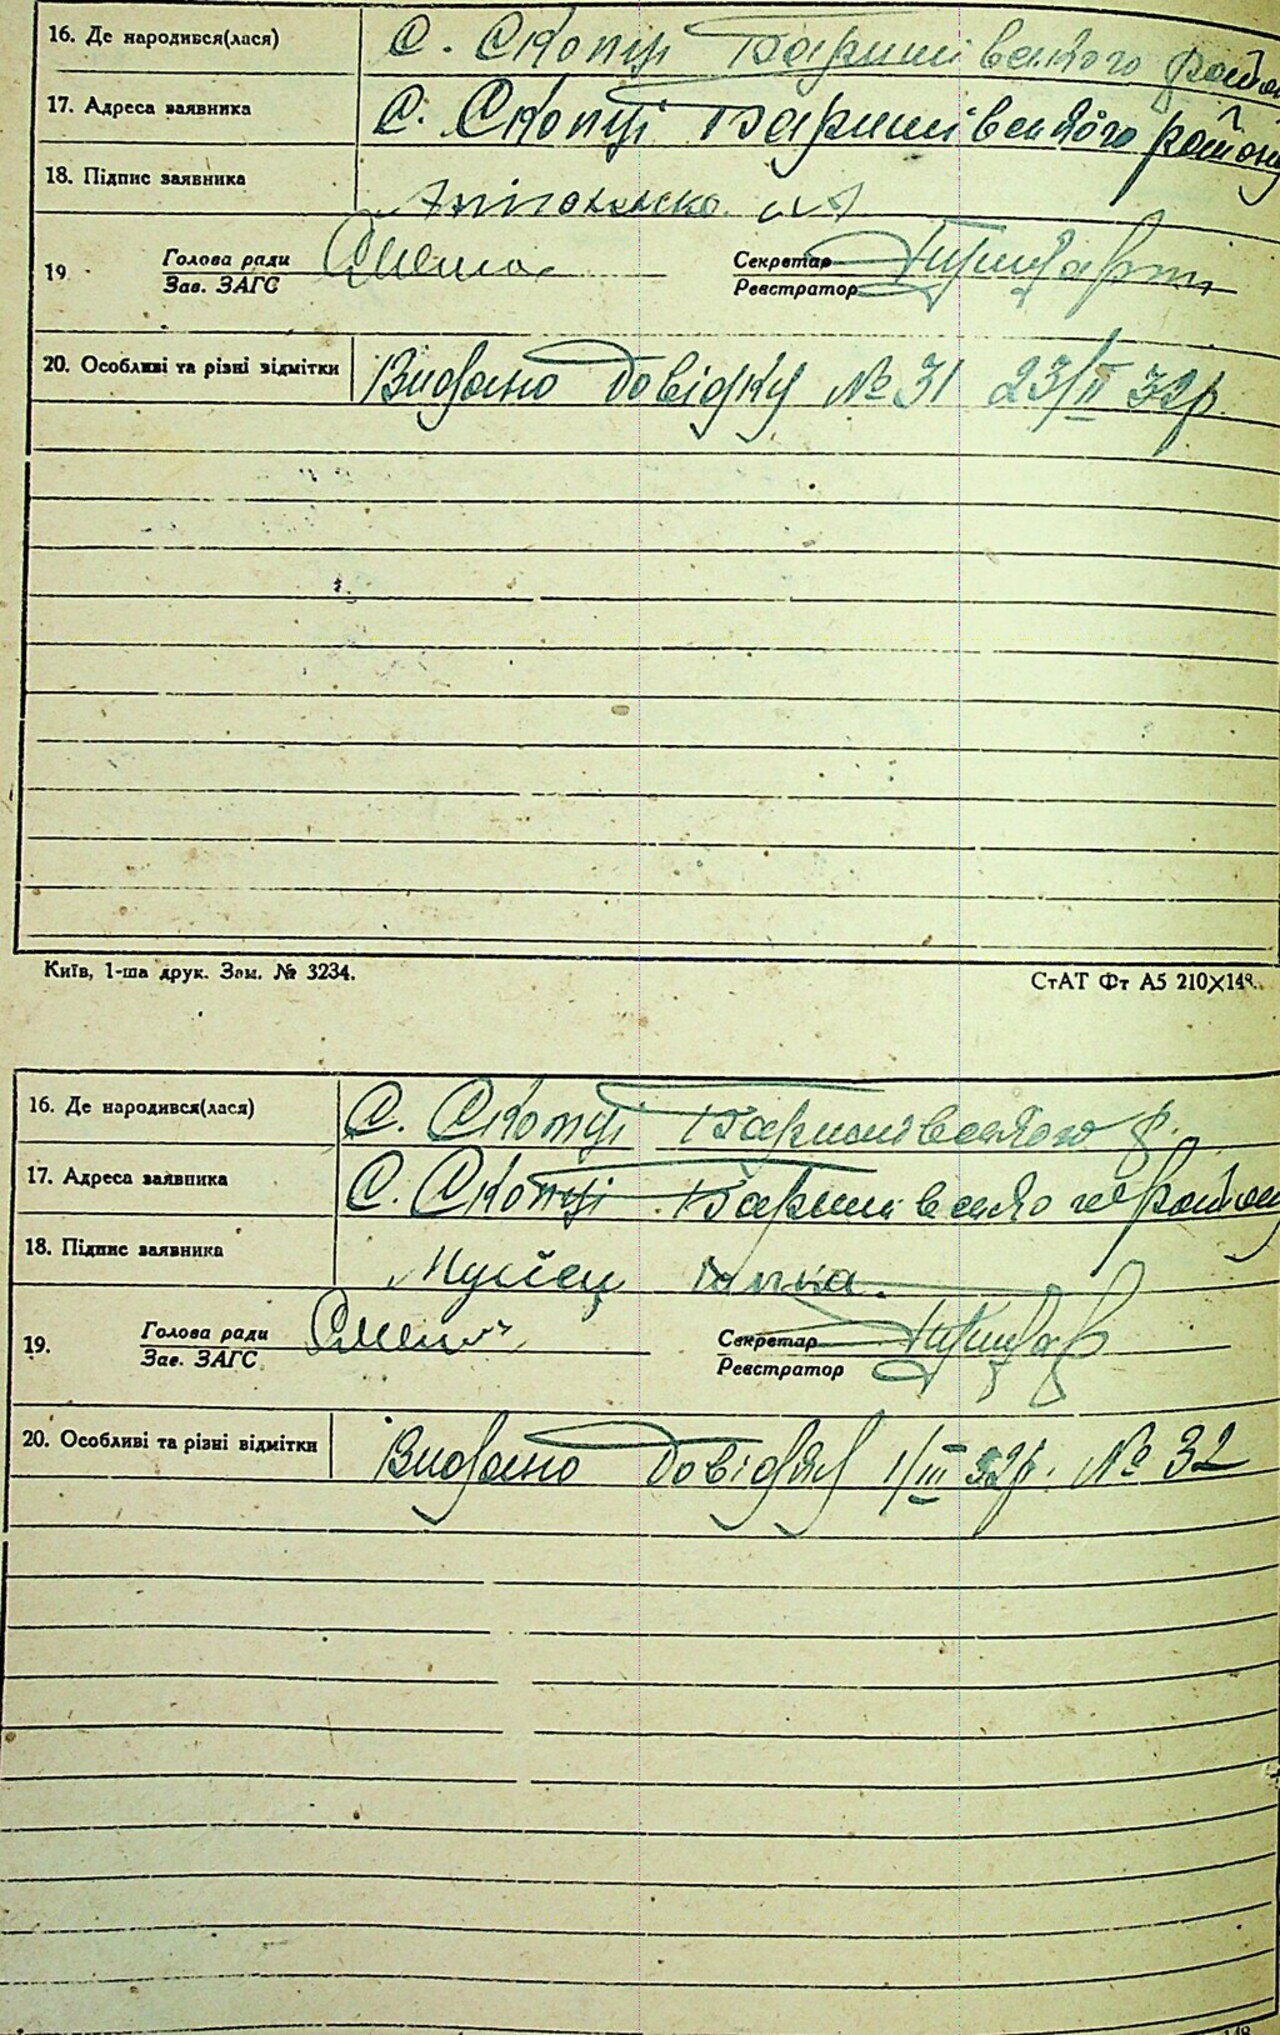 16. Де народився(лася) С. Скопці Баришівського район
17. Адреса заявника С. Скопці Баришівського району
18. Підпис заявника
19. Голова ради Секретар
Зав. ЗАГС Реєстратор
20. Особливі та різні відмітки Видано довідку № 31 23/II 32р.
Київ, 1-ша друк. Зам. № 3234. СтАТ Фт А5 210×148.
16. Де народився(лася) С. Скопці Баришівського р.
17. Адреса заявника С. Скопці Баришівського району
18. Підпис заявника
19. Голова ради Секретар
Зав. ЗАГС Реєстратор
20. Особливі та різні відмітки Видано довідку 1/III 32р. № 32